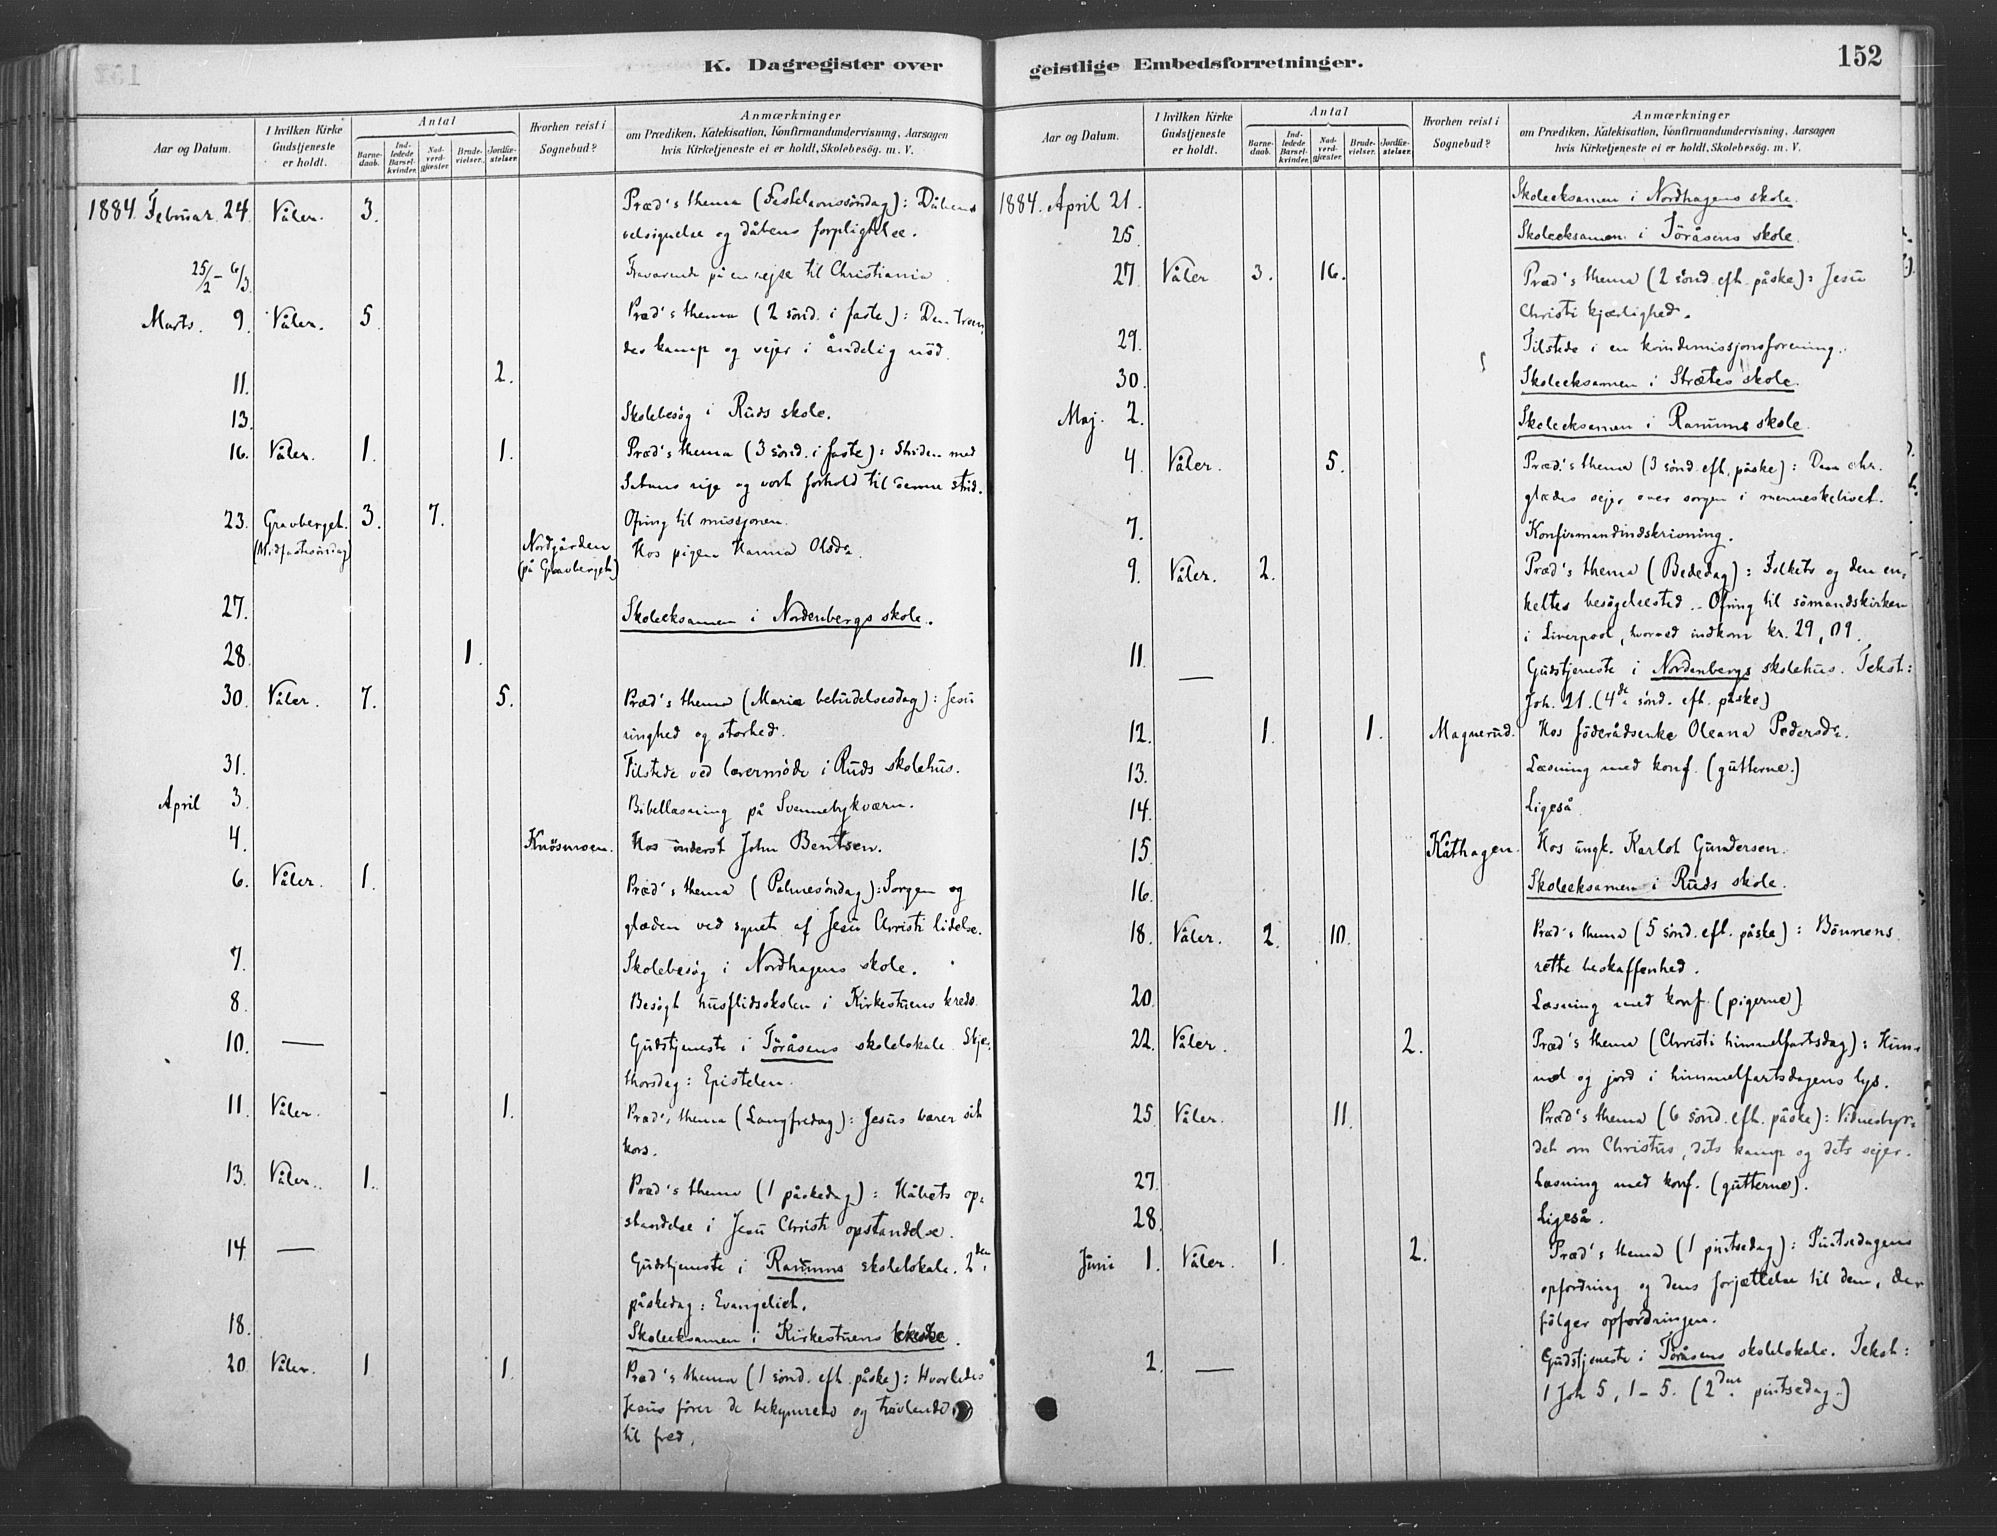 K. Dagregister over
Aar og Datum.
I hvilken Kirke Gudstjeneste er holdt.
Antal
Barnedaab.
Indledede Barselkvinder.
Nadverdgjæster.
Brudevielser.
Jordfæstelser.
Hvorhen reist i Sognebud?
Anmærkninger
om Prædiken, Katekisation, Konfirmandundervisning, Aarsagen
hvis Kirketjeneste ei er holdt, Skolebesøg. m. V.
1884. Februar 24. Våler. 3. Præd's thema (Fastelavnssöndag): Dåbens
velsignelse og dåbens forpligtelse.
25/2 - 6/3 Fraværende på en rejse til Christiania
Marts. 9. Våler. 5. Præd's thema (2 sönd. i faste): Den troen-
des kamp og sejer i åndelig nöd.
11. 2.
13. Skolebesög i Ruds skole.
16. Våler. 1. 1. Præd's thema (3 sönd. i faste): Striden med
Satans rige og vort forhold til denne strid.
23. Gravberget. 3. 7. Ofring til missjonen.
(Midfastesöndag) Nordgården Hos pigen Hanna Olsdr.
(på Gravberget)
27. Skoleeksamen i Nordenbergs skole.
28. 1.
30. Våler. 7. 5. Præd's thema (Mariæ bebudelsesdag): Jesu
ringhed og storhed.
31. Tilstede ved lærermöde i Ruds skolehus.
April 3. Bibellæsning på Svennebykværn.
4. Knösmoen. Hos inderst John Bentsen.
6. Våler. 1. Præd's thema (Palmesöndag): Sorgen og
glæden ved synet af Jesu Christi lidelse.
7. Skolebesög i Nordhagens skole.
8. Besögt husflidsskolen i Kirkestuens kreds.
10. — Gudstjeneste i Töråsens skolelokale. Skjæ-
thorsdag: Epistelen.
11. Våler. 1. Præd's thema (Langfredag): Jesus bærer sit
kors.
13. Våler. 1. Præd's thema (1 påskedag): Håbets op-
standelse i Jesu Christi opstandelse.
14 — Gudstjeneste i Ranums skolelokale. 2den
påskedag: Evangeliet.
18. Skoleeksamen i Kirkestuens
20. Våler. 1 1. Præd's thema (1 sönd. eft. påske): Hvorledes
Jesus förer de bekymrede og tvivlende
til fred.
geistlige Embedsforretninger.
152
Aar og Datum.
I hvilken Kirke Gudstjeneste er holdt.
Antal
Barnedaab.
Indledede Barselkvinder.
Nadverdgjæster.
Brudevielser.
Jordfæstelser.
Hvorhen reist i Sognebud?
Anmærkninger
om Prædiken, Katekisation, Konfirmandundervisning, Aarsagen
hvis Kirketjeneste ei er holdt, Skolebesøg. m. V.
1884. April 21. Skoleeksamen i Nordhagens skole.
25. Skoleeksamen i Töråsens skole.
27. Våler 3. 16. Præd's thema (2 sönd. eft. påske): Jesu
Christi kjærlighed.
29. Tilstede i en kvindemissjonsforening.
30. Skoleeksamen i Strætes skole.
Maj. 2. Skoleeksamen i Ranums skole.
4. Våler. 5. Præd.'s thema (3 sönd. eft. påske): Den chr.
glædes sejer over sorgen i menneskelivet.
7. Konfirmandindskrivning.
9. Våler. 2. Præd's thema (Bededag): Folkets og den en-
keltes besögelsestid. - Ofring til sömandskirken
i Liverpool, hvorved indkom kr. 29,09.
11. — Gudstjeneste i Nordenbergs skolehus. Tekst:
Joh. 21. (4de sönd. eft. påske)
12. 1. 1. Magnerud. Hos föderådsenke Oleana Pedersdr.
13. Læsning med konf. (gutterne.)
14. Ligeså
15. Kåthagen. Hos ungk. Karlot Gundersen.
16. Skoleeksamen i Ruds skole.
18. Våler. 2. 10. Præd's thema (5 sönd. eft. påske): Bönnens
rette beskaffenhed.
20. Læsning med konf. (pigerne)
22. Våler. 2. Præd's thema (Christi himmelfartsdag): Him-
mel og jord i himmelfartsdagens lys.
25. Våler. 11. Præd's thema (6 sönd. eft. påske): Vidnesbyr-
det om Christus, dets kamp og dets sejer.
27. Læsning med konf. (gutterne).
28. Ligeså.
Juni 1. Våler. 1. 2. Præd's thema (1 pintsedag): Pintsedagens
opfordring og dens forjættelse til dem, der
fölger opfordringen.
2. — Gudstjeneste i Töråsens skolelokale. Tekst:
1 Joh 5, 1-5. (2den pintsedag.)